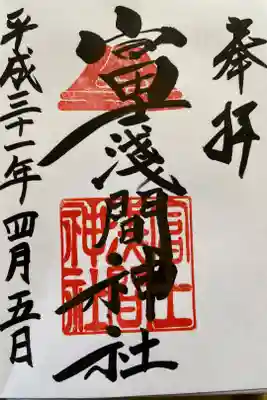 奉拝
冨士淺間神社
平成三十一年四月五日
冨士
淺間
神社